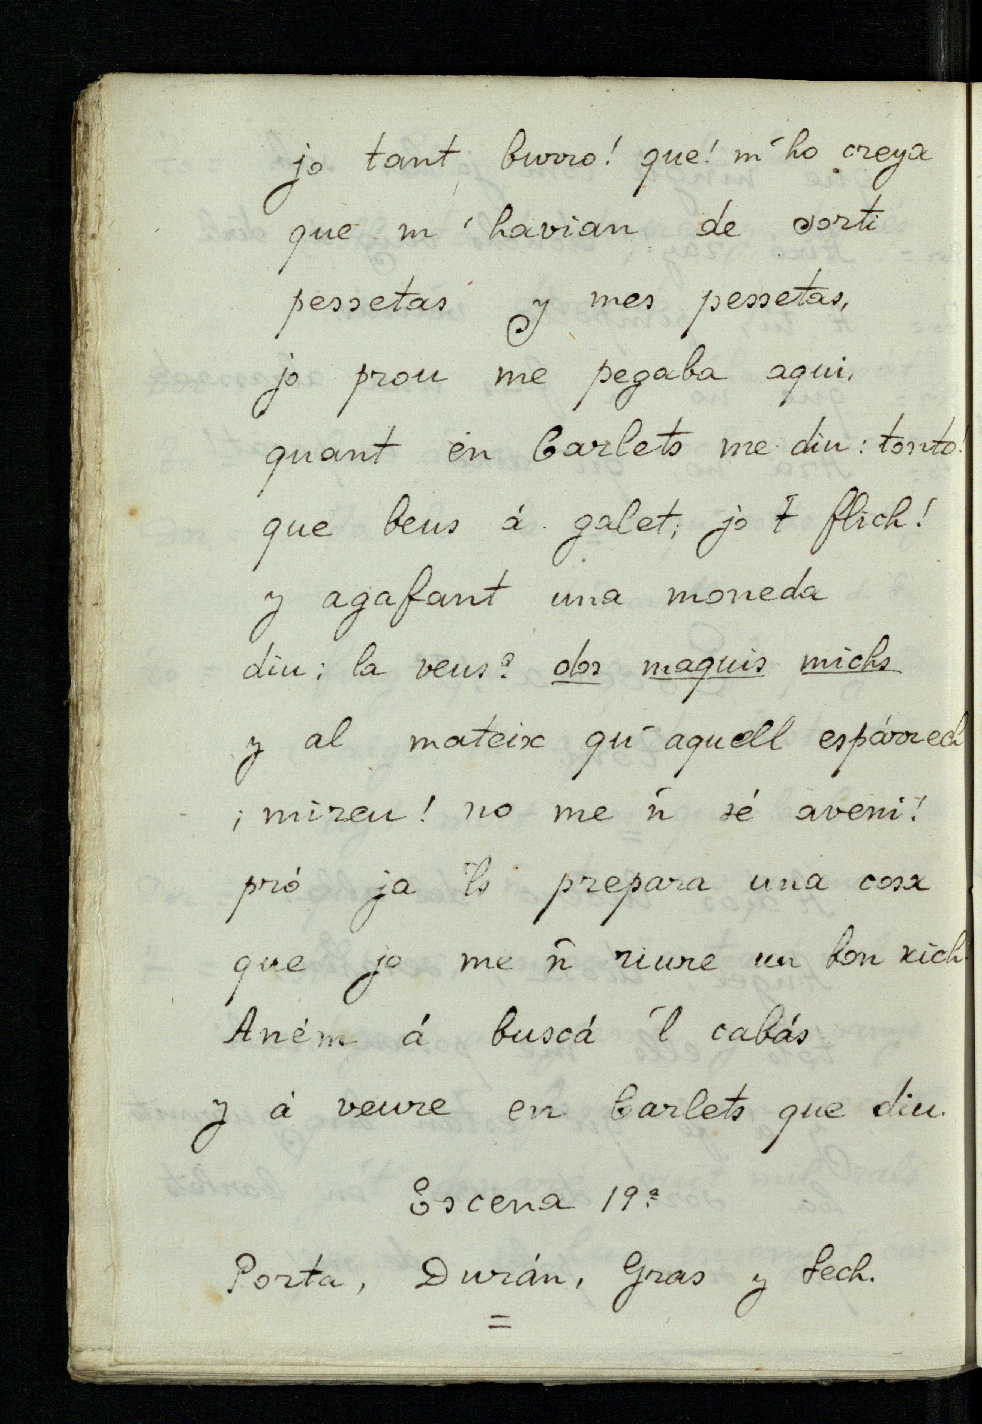 jo tant burro! que! m'ho creya
que m'havian de sorti
pessetas y mes pessetas,
jo prou me pegaba aqui,
quant en Carlets me diu: tonto!
que beus á galet; jo t flich!
y agafant una moneda
diu; la veus? dos maquis michs
y al mateix qu'aquell espárrech
¡mireu! no me 'n sé aveni!
pró ja 'ls prepara una cosa
que jo me 'n riure un bon xich.
Aném á buscá 'l cabás
y á veure en Carlets que diu.
Escena 19ª
Porta, Durán, Gras y Sech.
=